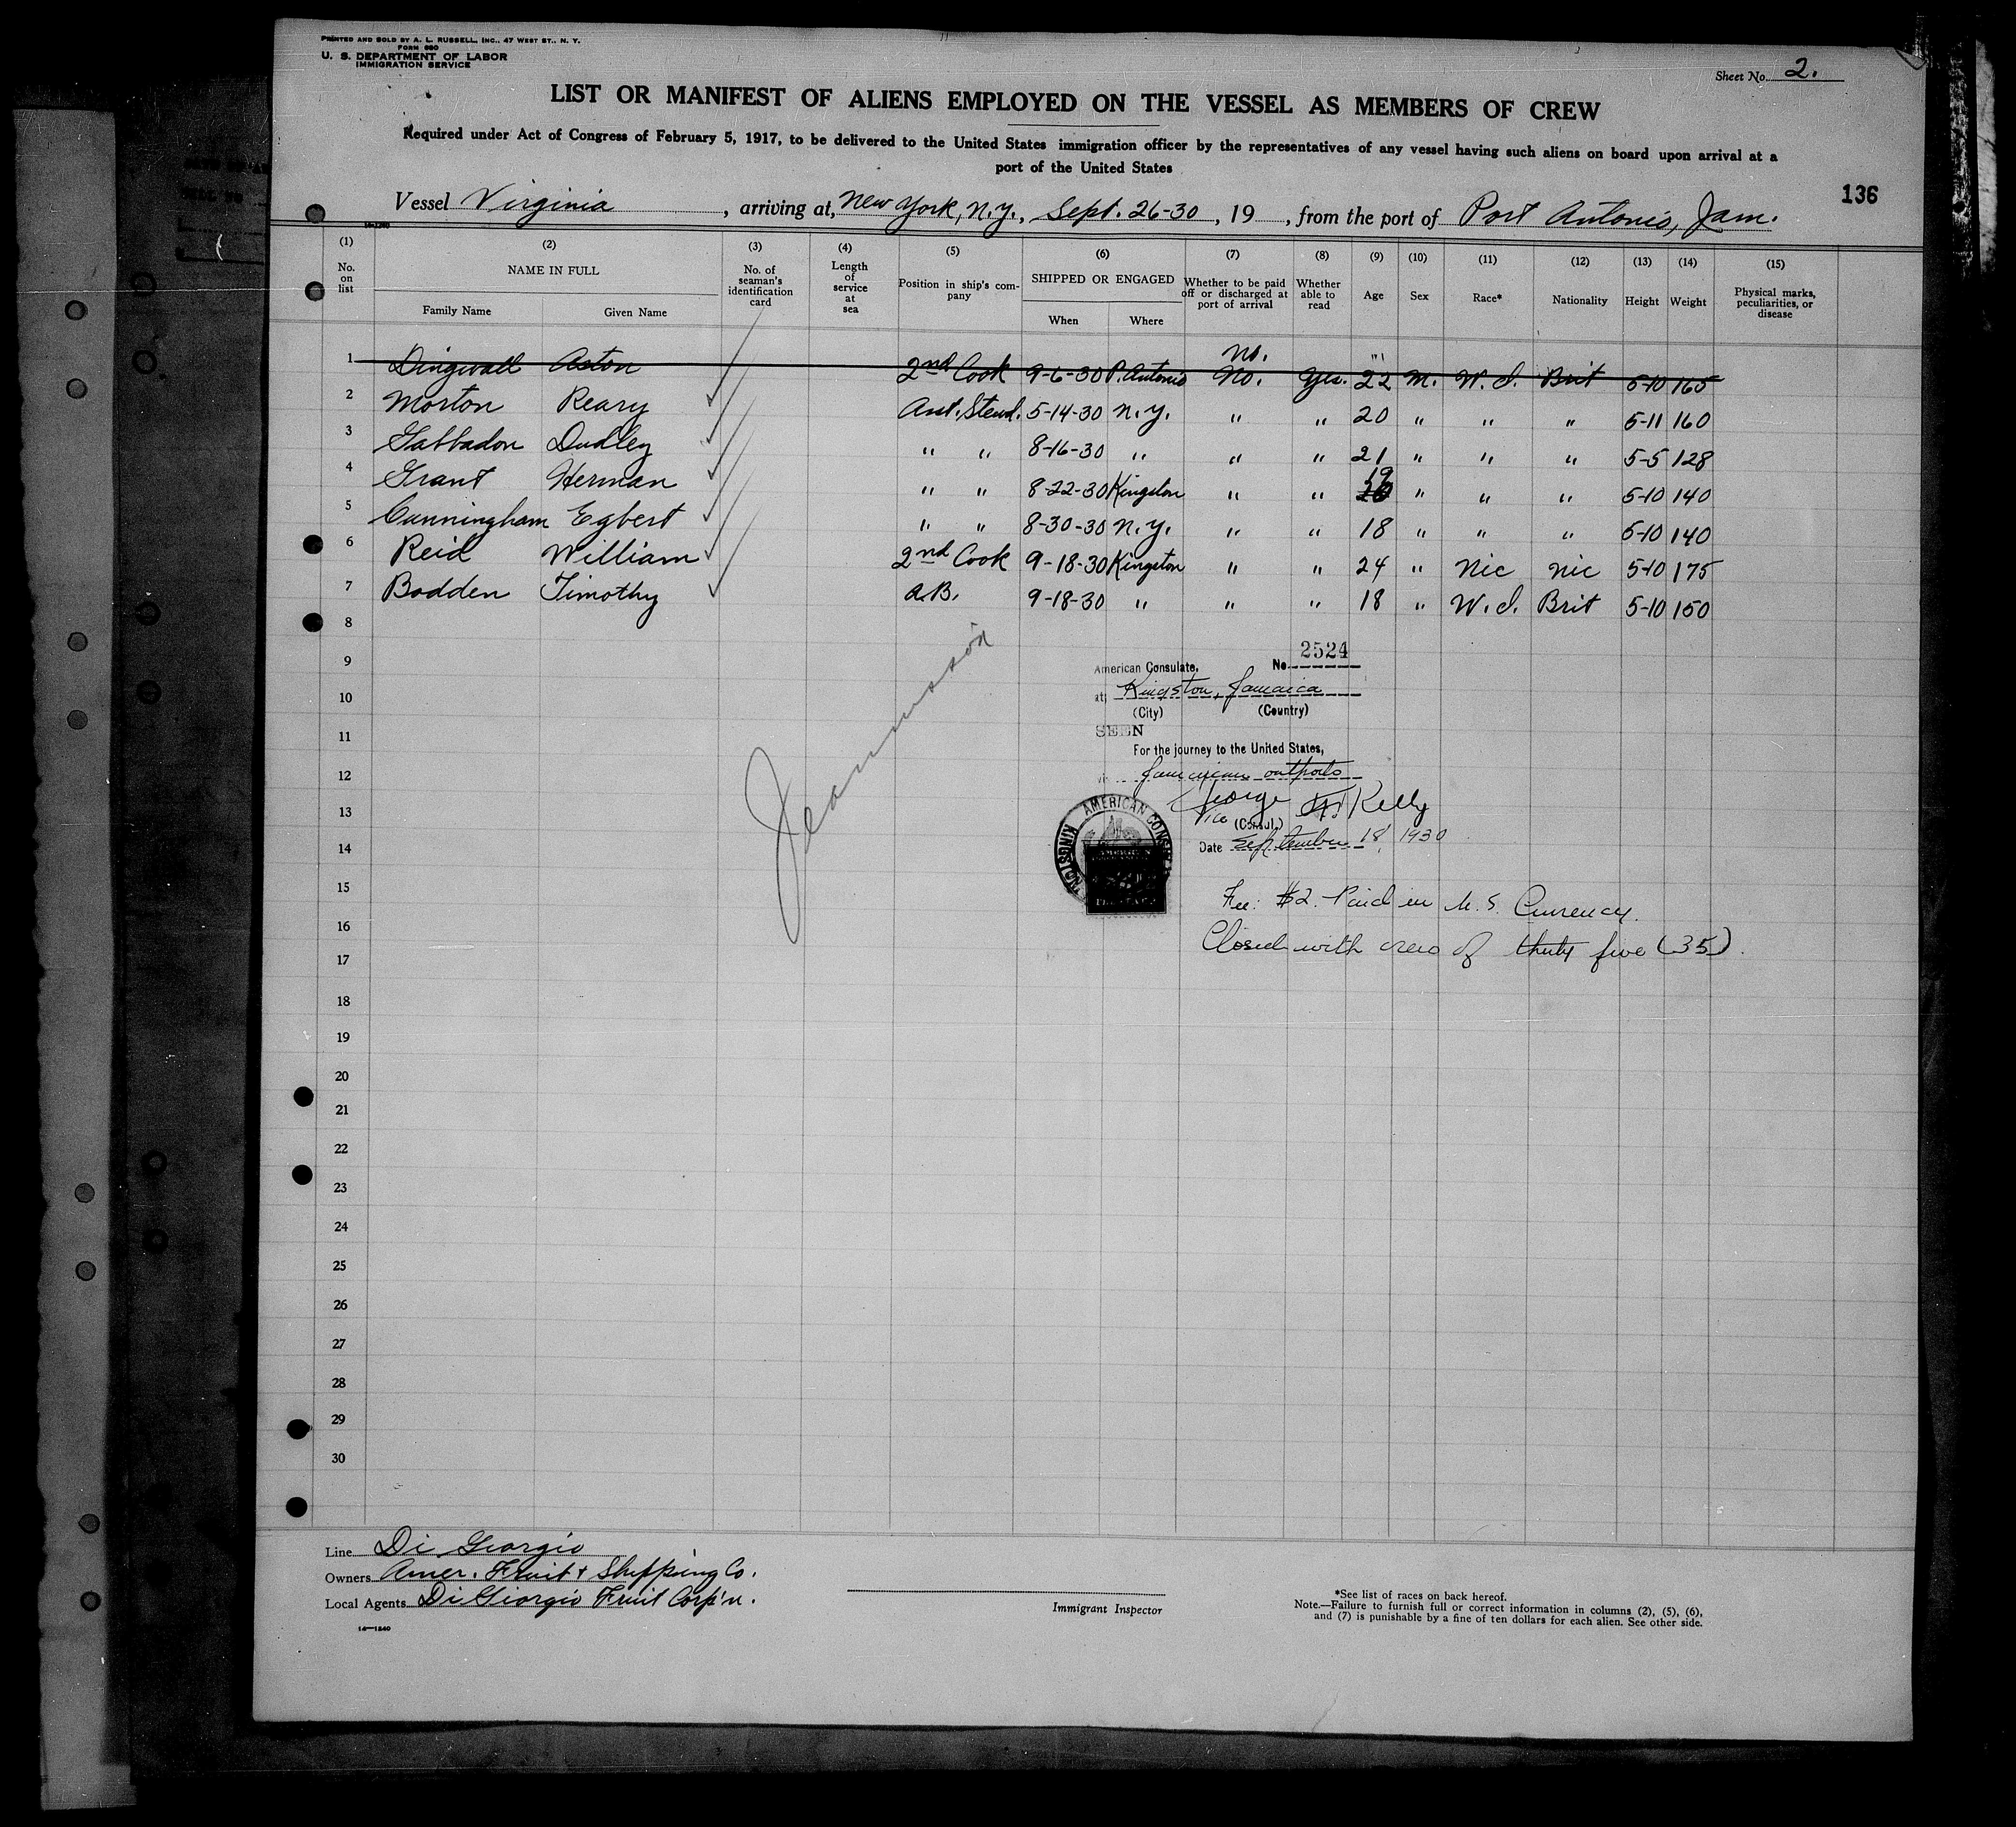 PRINTED AND SOLD BY A. L. RUSSELL, INC., 47 WEST ST., N. Y.
FORM 680
U. S. DEPARTMENT OF LABOR
IMMIGRATION SERVICE
Sheet No. 2.
LIST OR MANIFEST OF ALIENS EMPLOYED ON THE VESSEL AS MEMBERS OF CREW
Required under Act of Congress of February 5, 1917, to be delivered to the United States immigration officer by the representatives of any vessel having such aliens on board upon arrival at a
port of the United States
136
Vessel Virginia, arriving at, New York, N.Y., Sept. 26-30, 19 , from the port of Port Antonio, Jam.
(1) (2) (3) (4) (5) (6) (7) (8) (9) (10) (11) (12) (13) (14) (15)
No. on list NAME IN FULL Family Name Given Name No. of seaman's identification card Length of service at sea Position in ship's company SHIPPED OR ENGAGED When Where Whether to be paid off or discharged at port of arrival Whether able to read Age Sex Race* Nationality Height Weight Physical marks, peculiarities, or disease
no.
1 Dingwall Aston 2nd Cook 9-6-30 P. Antonio No. Yes. 22 M. W. I. Brit 5-10 165
2 Morton Reary Asst. Stewd. 5-14-30 N.Y. " " 20 " " " 5-11 160
3 Gabbadon Dudley " " 8-16-30 " " " 21 " " " 5-5 128
4 Grant Herman " " 8-22-30 Kingston " " 19 " " " 5-10 140
5 Cunningham Egbert " " 8-30-30 N.Y. " " 18 " " " 5-10 140
6 Reid William 2nd Cook 9-18-30 Kingston " " 24 " Nic Nic 5-10 175
7 Bodden Timothy A.B. 9-18-30 " " " 18 " W. I. Brit 5-10 150
8
9
10
11
12
13
14
15
16
17
18
19
20
21
22
23
24
25
26
27
28
29
30
American Consulate, No 2524
at Kingston, Jamaica
(City) (Country)
SEEN
For the journey to the United States,
Jamaican outports
George Kelly
Vice (Consul.)
Date September 18, 1930
AMERICAN CONSUL
KINGSTON
Fee: $2. Paid in U. S. Currency.
Closed with crew of thirty five (35).
Line Di Giorgio
Owners Amer. Fruit + Shipping Co.
Local Agents Di Giorgio Fruit Corp'n.
14—1240
Immigrant Inspector
*See list of races on back hereof.
Note.—Failure to furnish full or correct information in columns (2), (5), (6),
and (7) is punishable by a fine of ten dollars for each alien. See other side.